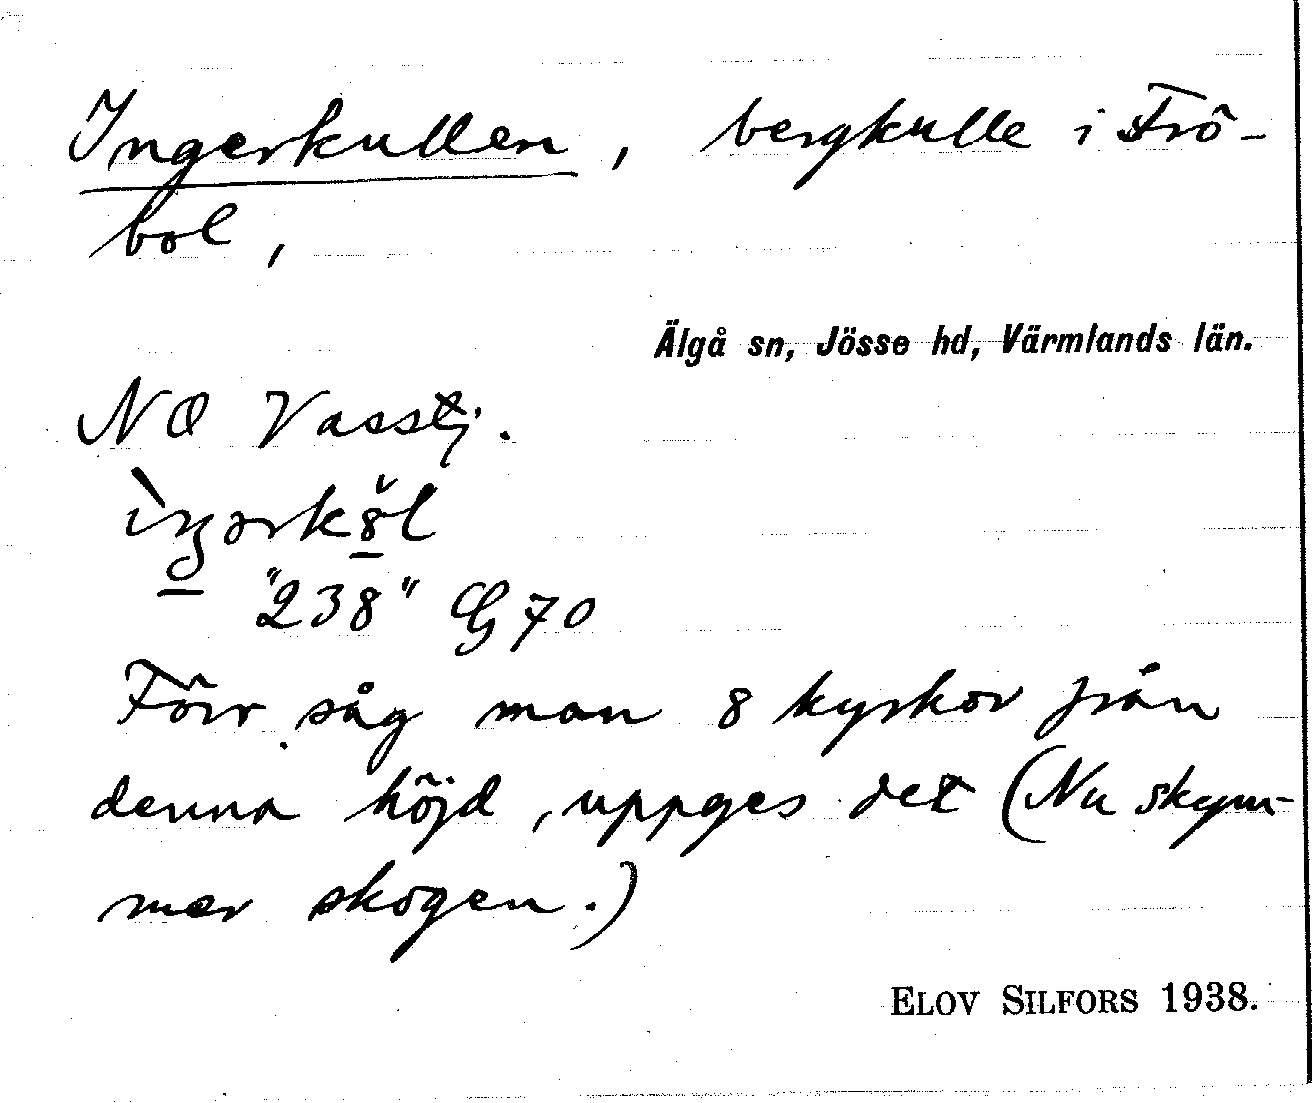 Ingerkullen, bergkulle i Frö-
bol,
Älgå sn, Jösse hd, Värmlands län.
NO Vasstj.
"238" G 70
Förr såg man 8 kyrkor från
denna höjd, uppges det (Nu skym-
mer skogen.)
ELOV SILFORS 1938.